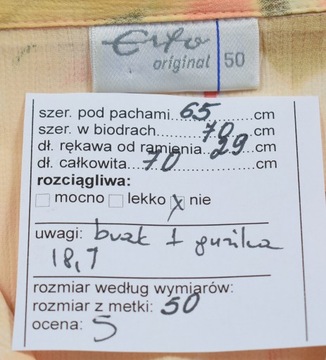 Erfo
original 50
szer. pod pachami..65......cm
szer. w biodrach.......70....cm
dł. rękawa od ramienia..29..cm
dł. całkowita...70..............cm
rozciągliwa:
mocno lekko x nie
uwagi: brak 1 guzika
18,7
rozmiar według wymiarów:
rozmiar z metki: 50
ocena: 5